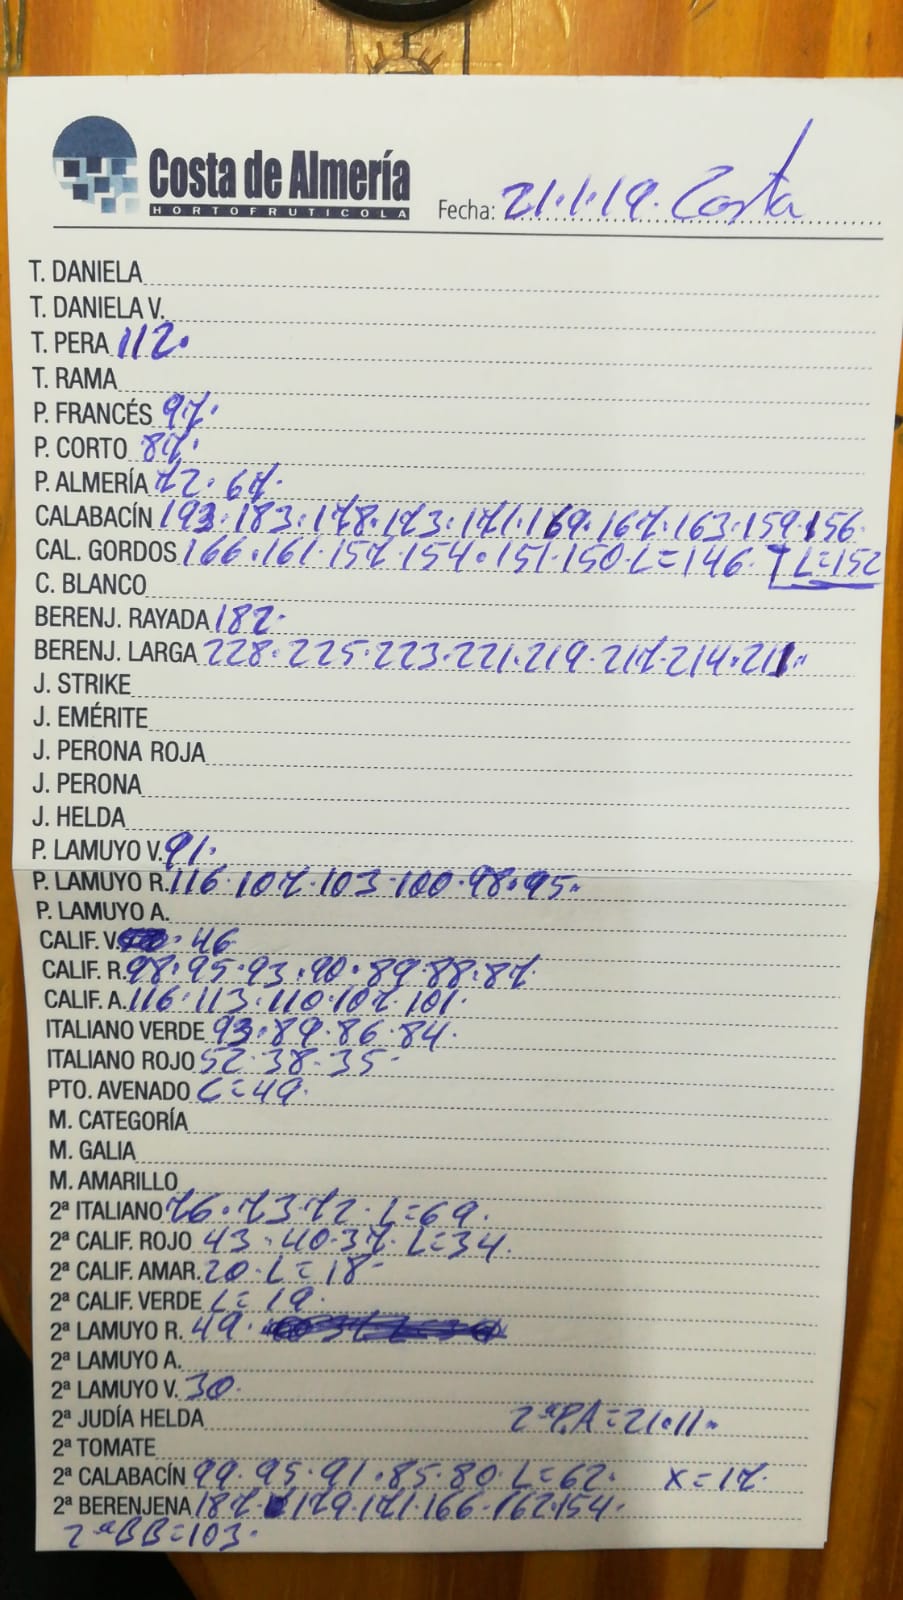 Costa de Almería
HORTOFRUTICOLA
Fecha: 21.1.19. Costa
T. DANIELA
T. DANIELA V.
T. PERA 112.
T. RAMA
P. FRANCÉS 97.
P. CORTO 87.
P. ALMERÍA 72. 67.
CALABACÍN 193. 183. 178. 173. 171. 169. 167. 163. 159. 156.
CAL. GORDOS 166. 161. 157. 154. 151. 150. L=146. L=152
C. BLANCO
BERENJ. RAYADA 182.
BERENJ. LARGA 228. 225. 223. 221. 219. 217. 214. 211.
J. STRIKE
J. EMÉRITE
J. PERONA ROJA
J. PERONA
J. HELDA
P. LAMUYO V. 91.
P. LAMUYO R. 116. 107. 103. 100. 98. 95.
P. LAMUYO A.
CALIF. V. 46
CALIF. R. 98. 95. 93. 90. 89. 88. 87.
CALIF. A. 116. 113. 110. 107. 101.
ITALIANO VERDE 93. 89. 86. 84.
ITALIANO ROJO 52. 38. 35.
PTO. AVENADO L=49.
M. CATEGORÍA
M. GALIA
M. AMARILLO
2ª ITALIANO 76. 73. 72. L=69.
2ª CALIF. ROJO 43. 40. 37. L=34.
2ª CALIF. AMAR. 20. L=18
2ª CALIF. VERDE L=19.
2ª LAMUYO R. 49.
2ª LAMUYO A.
2ª LAMUYO V. 30.
2ª JUDÍA HELDA 2ªP.A=21.11.
2ª TOMATE
2ª CALABACÍN 99. 95. 91. 85. 80. L=62. X=17.
2ª BERENJENA 187. 179. 171. 166. 162. 154.
2ªBB=103.